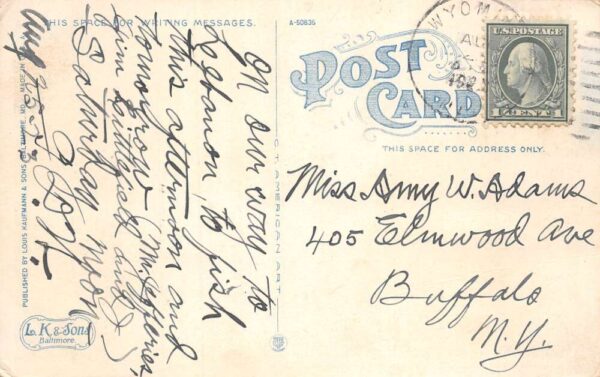 THIS SPACE FOR WRITING MESSAGES.
A-50835
On our way to
Lebanon, to fish
this afternoon and
tomorrow (Mr. Jefferies,
Jim and I)
Saturday noon
Aug 25
C. AMERICAN ART
PUBLISHED BY LOUIS KAUFMANN & SONS, BALTIMORE, MD. MADE IN
L. K & Sons
Baltimore.
POST
CARD
THIS SPACE FOR ADDRESS ONLY.
WYOMING
AU
U.S. POSTAGE
1 CENT 1
Miss Amy W. Adams
405 Elmwood Ave
Buffalo
N.Y.